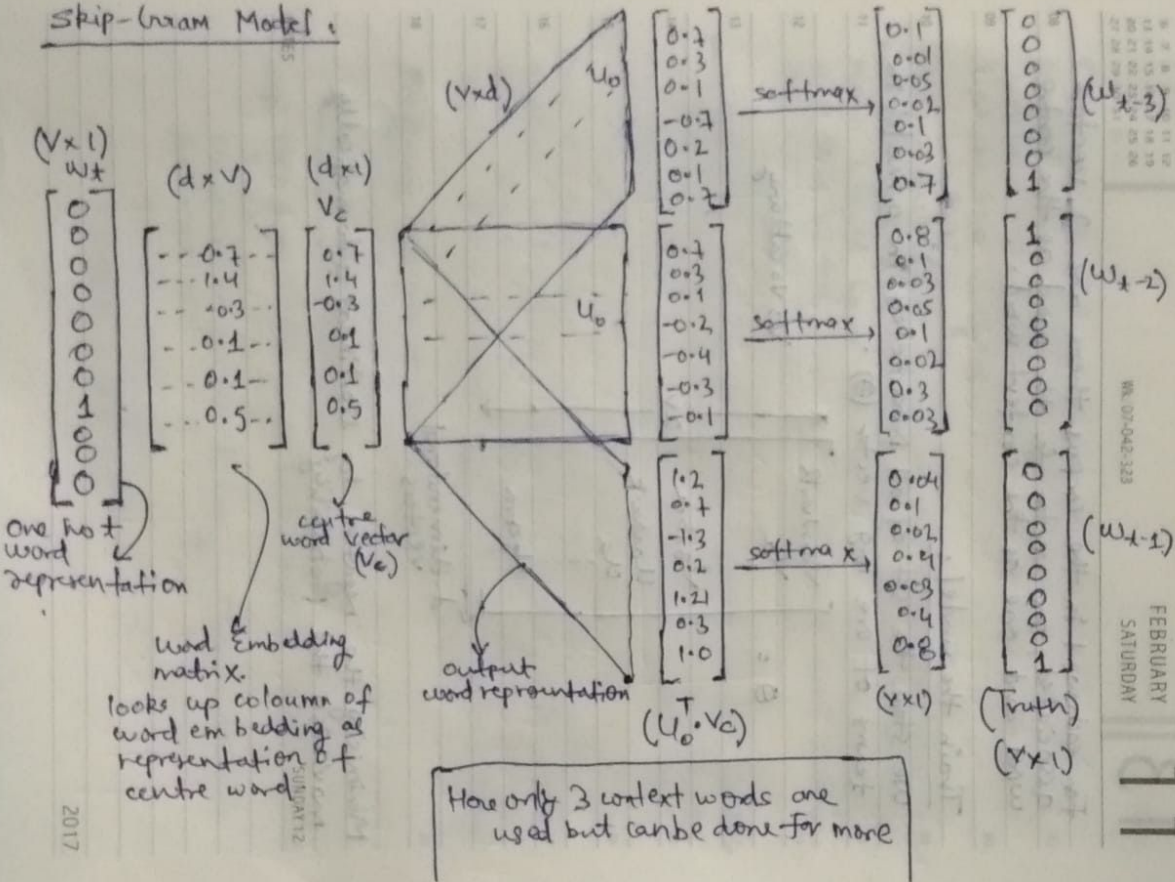 Skip-Gram Model :
(V×1)
wt
0
0
0
0
0
0
0
1
0
0
0
one hot
word
representation
(d×V)
- - -0.7- -
- - - 1.4
- - - -0.3
- - -0.1- -
- - - 0.1- -
- - - 0.5- -
word Embedding
matrix.
looks up coloumn of
word embedding as
representation of
centre word
(d×1)
Vc
0.7
1.4
-0.3
0.1
0.1
0.5
centre
word vector
(Vc)
(V×d)
uo
uo
output
word representation
0.7
0.3
0.1
-0.7
0.2
0.1
0.7
softmax
0.1
0.01
0.05
0.02
0.1
0.03
0.7
0
0
0
0
0
0
0
1
(wt-3)
0.7
0.3
0.1
-0.2
-0.4
-0.3
-0.1
softmax
0.8
0.1
0.03
0.05
0.1
0.02
0.3
0.03
1
0
0
0
0
0
0
0
(wt-2)
1.2
0.7
-1.3
0.2
1.21
0.3
1.0
softmax
0.04
0.1
0.02
0.4
0.03
0.4
0.8
0
0
0
0
0
0
0
1
(wt-1)
(uoT.Vc)
(V×1)
(Truth)
(V×1)
Here only 3 context words are
used but can be done for more
WK 07-042-323
FEBRUARY
SATURDAY
SUNDAY 12
2017